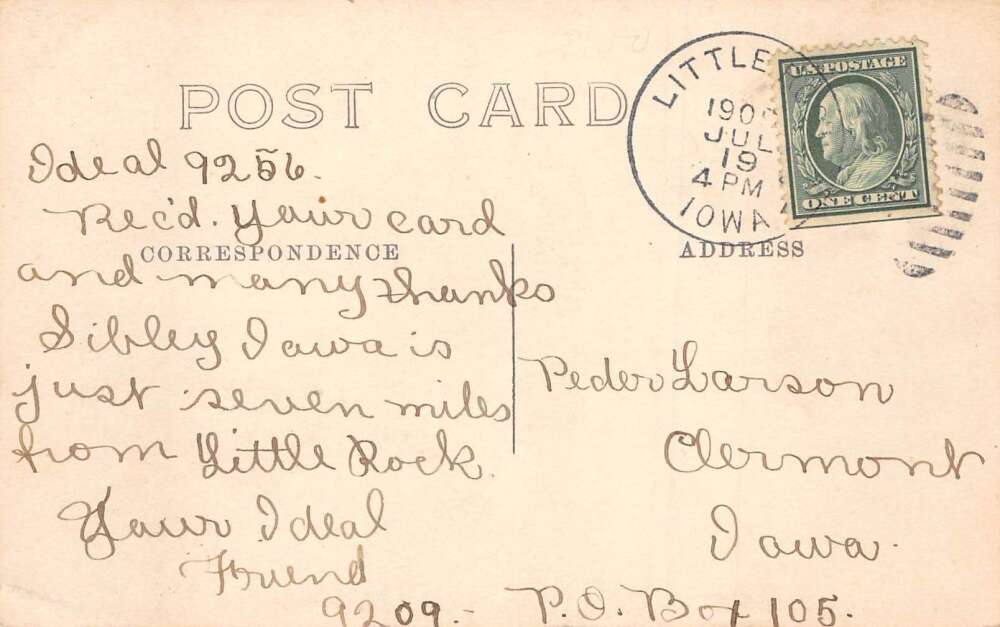 POST CARD
LITTLE
190
JUL
19
4 PM
IOWA
U.S. POSTAGE
ONE CENT
Ideal 9256.
Rec'd. Your card
CORRESPONDENCE
and many thanks
Sibley Iowa is
just seven miles
from Little Rock.
Your Ideal
Friend
9209.-
ADDRESS
Peder Larson
Clermont
Iowa.
P.O. Box 105.